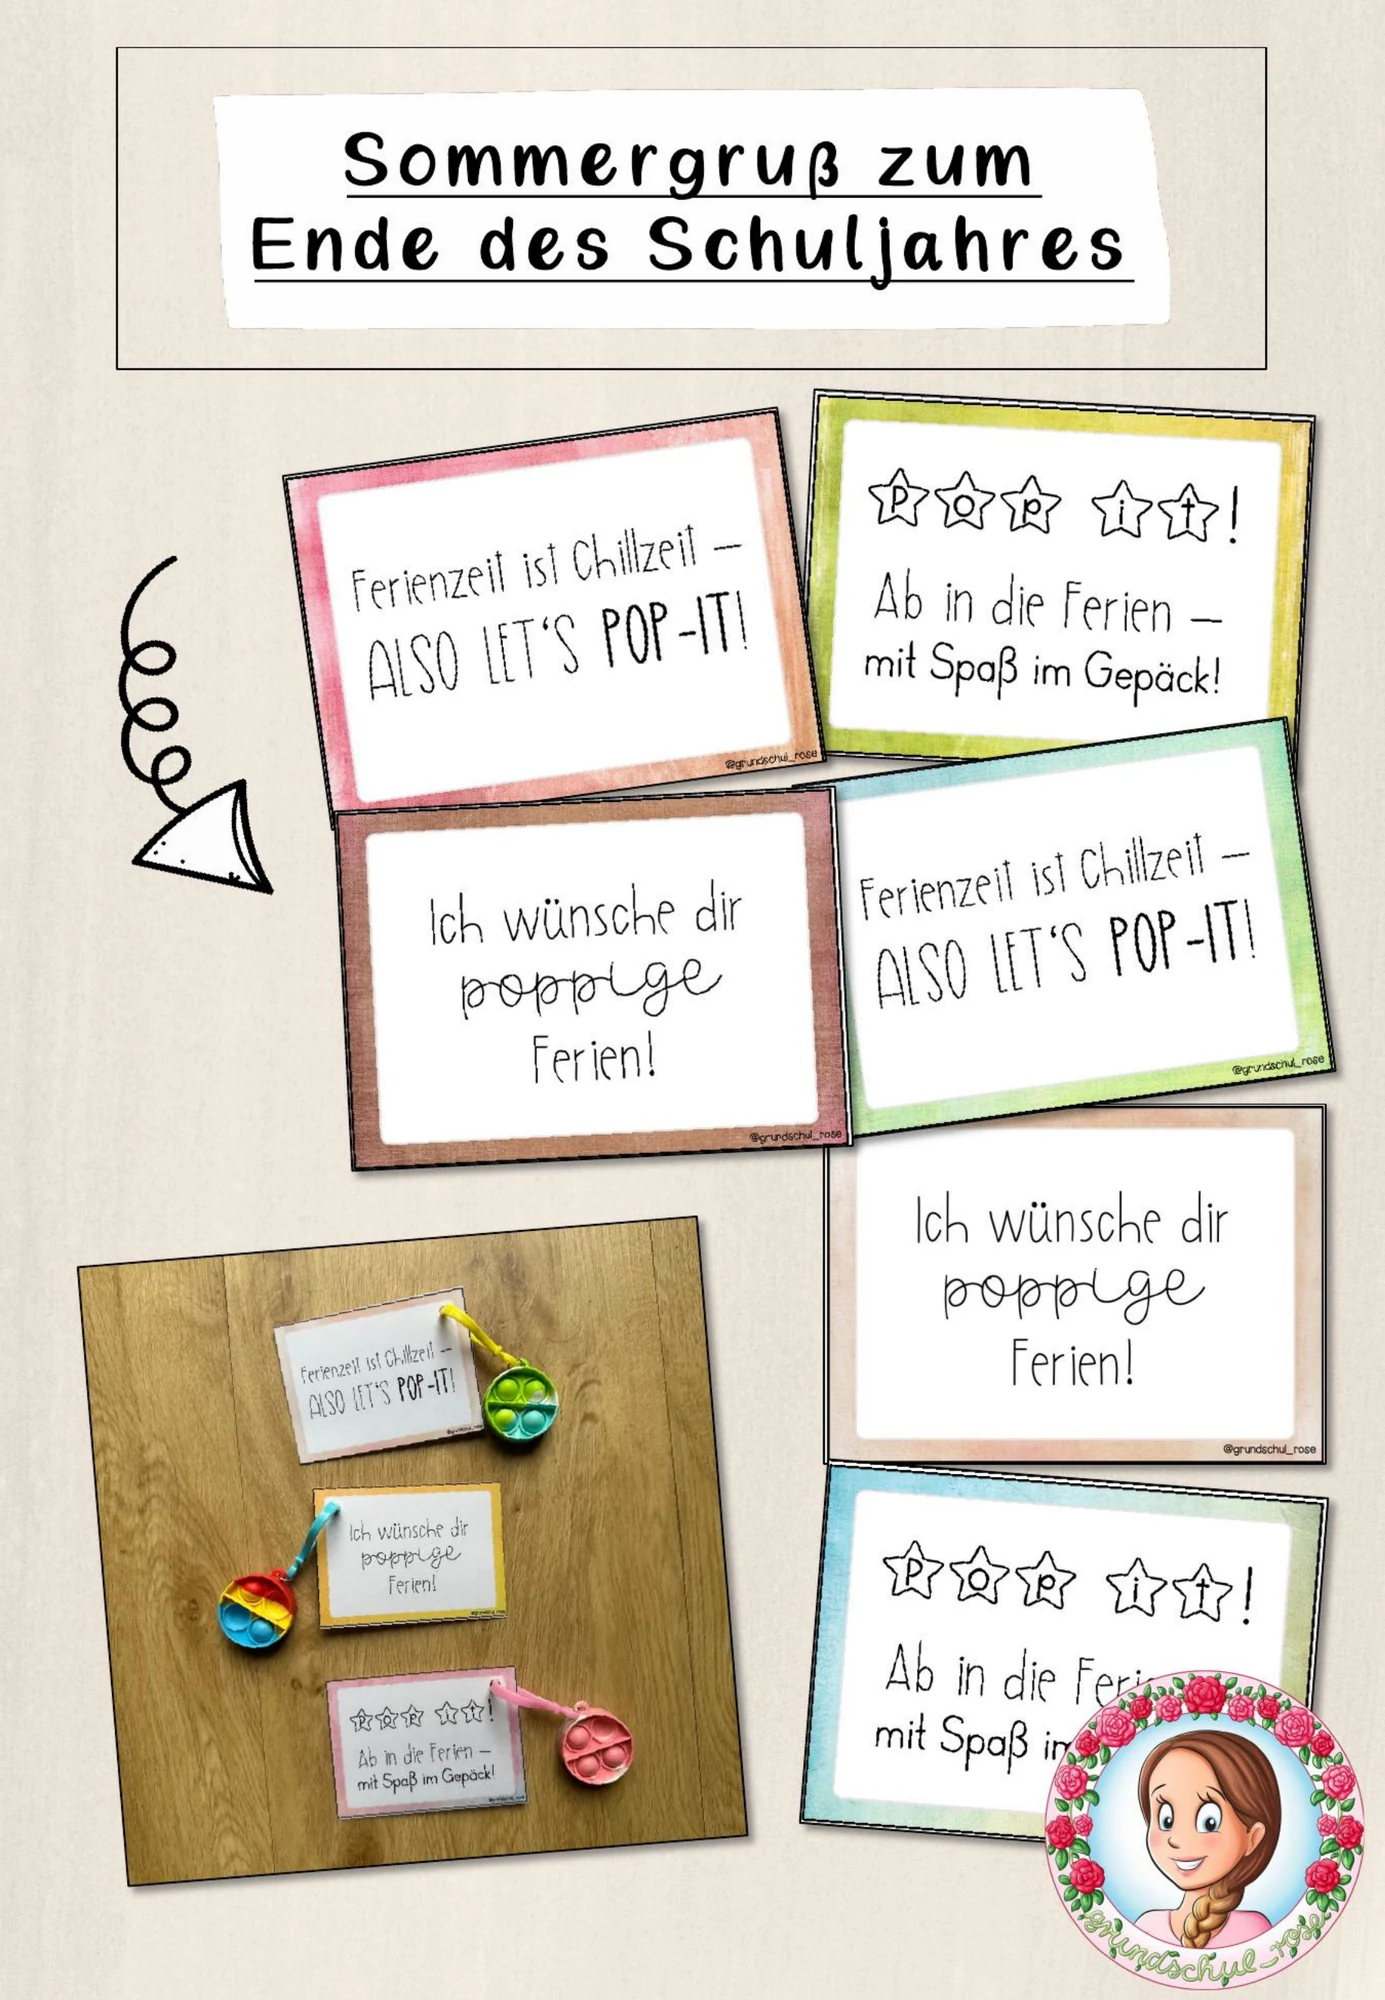 Sommergruß zum
Ende des Schuljahres
Ferienzeit ist Chillzeit –
ALSO LET'S POP-IT!
@grundschul_rose
Pop it!
Ab in die Ferien –
mit Spaß im Gepäck!
Ich wünsche dir
poppige
Ferien!
@grundschul_rose
Ferienzeit ist Chillzeit –
ALSO LET'S POP-IT!
@grundschul_rose
Ich wünsche dir
poppige
Ferien!
@grundschul_rose
Ferienzeit ist Chillzeit –
ALSO LET'S POP-IT!
@grundschul_rose
Ich wünsche dir
poppige
Ferien!
@grundschul_rose
Pop it!
Ab in die Ferien –
mit Spaß im Gepäck!
@grundschul_rose
Pop it!
Ab in die
mit Spaß
grundschul_rose